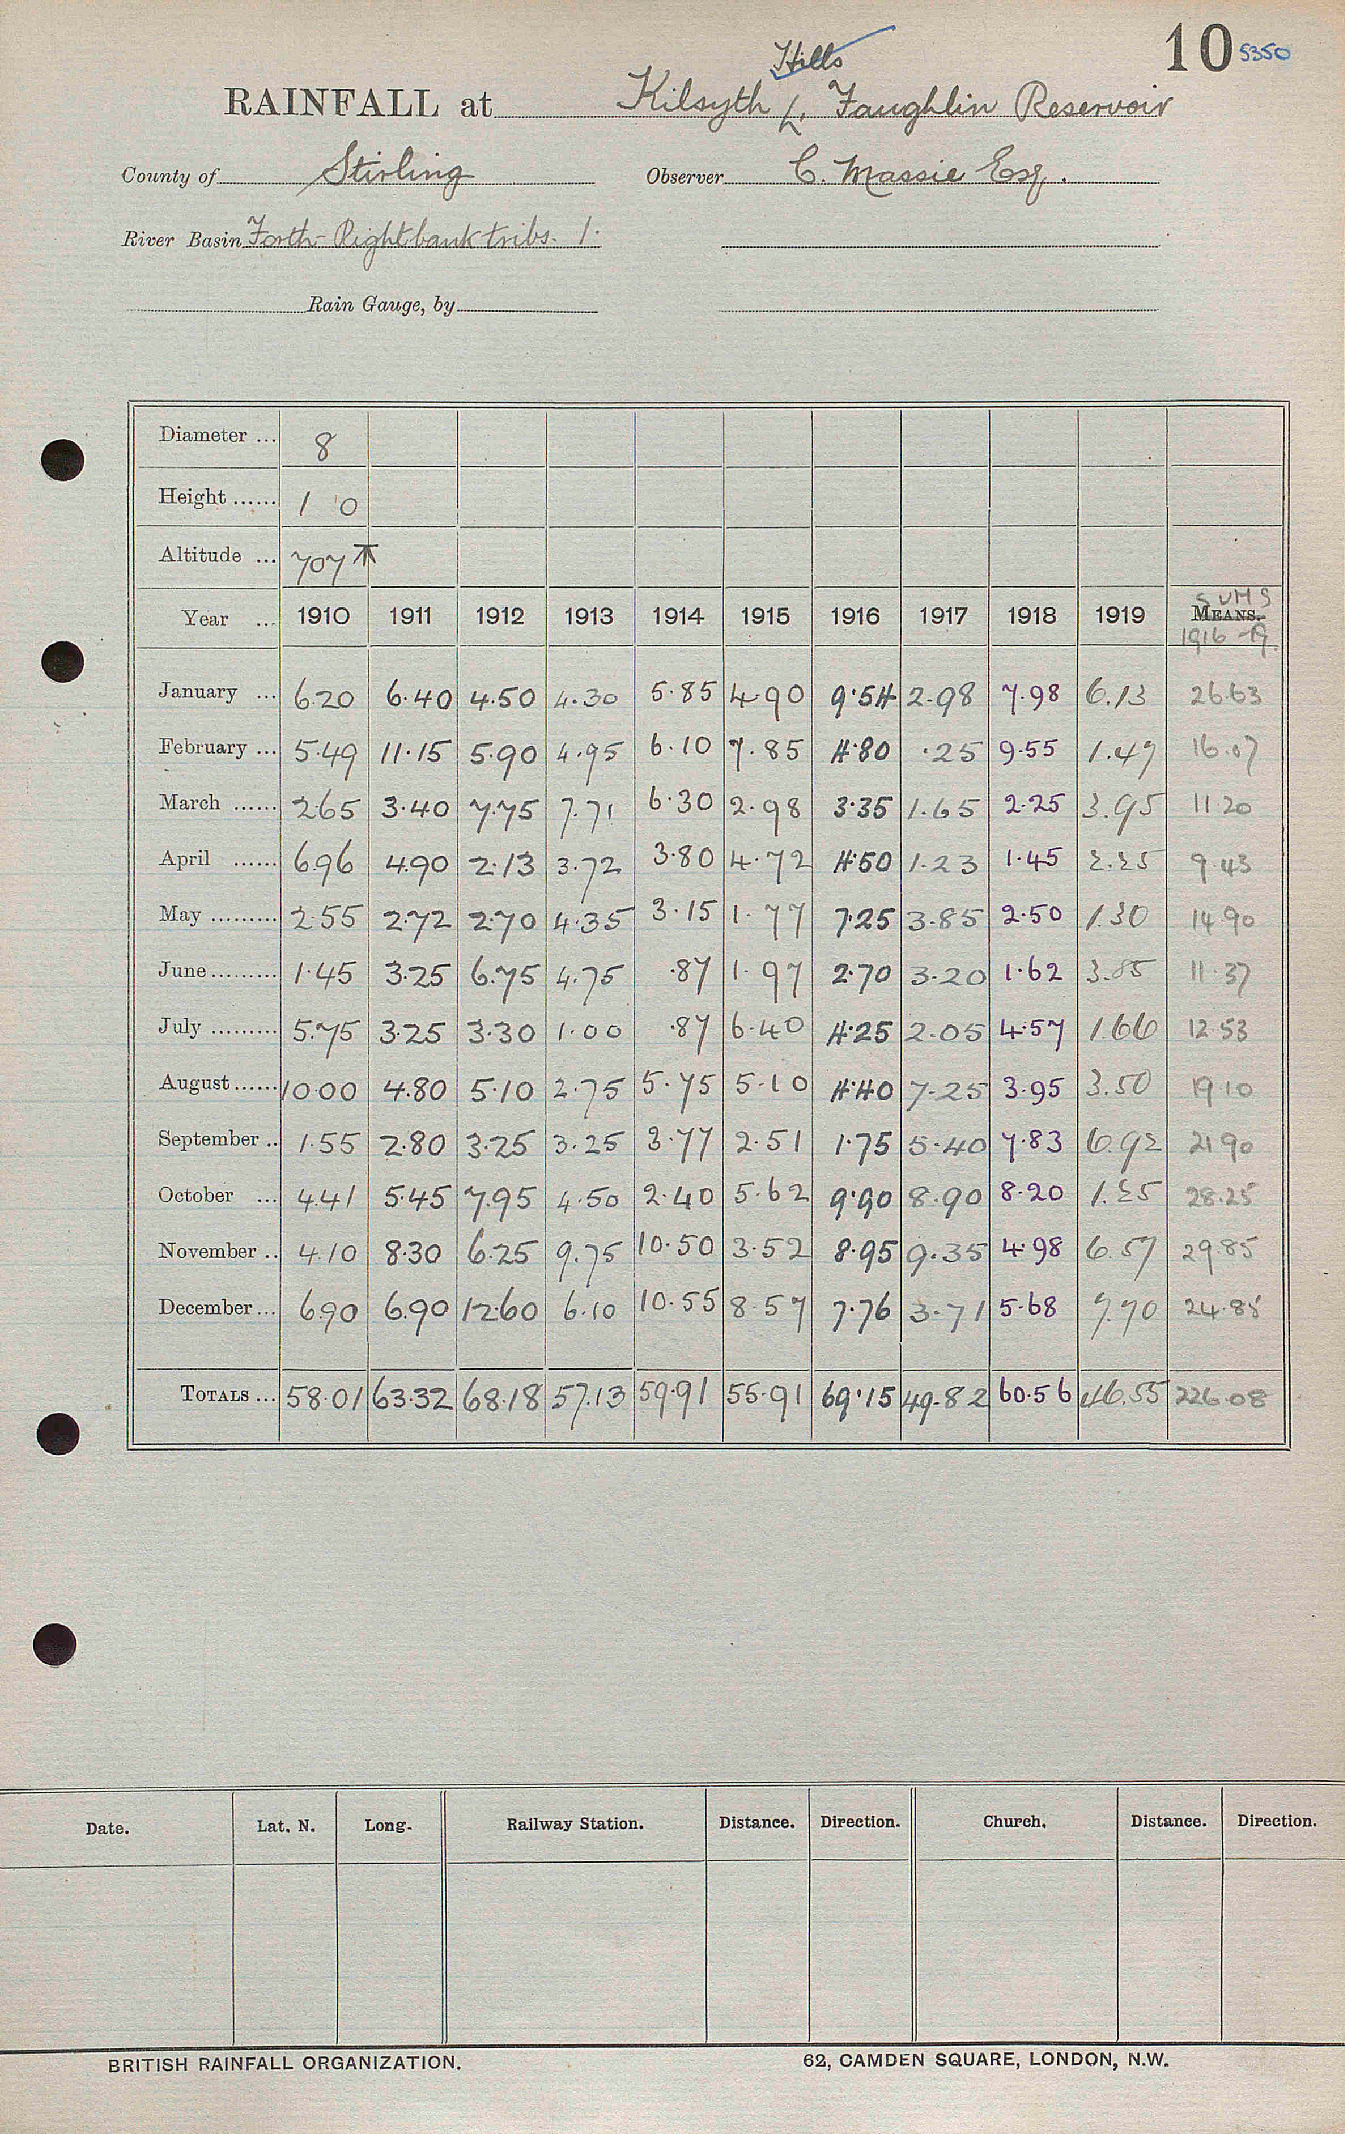 10 5350
Hills
RAINFALL at Kilsyth, Faughlin Reservoir
County of Stirling Observer C. Massie Esq.
River Basin Forth-Right bank tribs. 1.
Rain Gauge, by
Diameter ... 8
Height ...... 1 0
Altitude ... 707 T
SUMS
Year ... 1910 1911 1912 1913 1914 1915 1916 1917 1918 1919 MEANS.
1916-19.
January ... 6.20 6.40 4.50 4.30 5.85 4.90 9.54 2.98 7.98 6.13 26.63
February ... 5.49 11.15 5.90 4.95 6.10 7.85 4.80 .25 9.55 1.47 16.07
March ...... 2.65 3.40 7.75 7.71 6.30 2.98 3.35 1.65 2.25 3.95 11.20
April ...... 6.96 4.90 2.13 3.72 3.80 4.72 4.50 1.23 1.45 2.25 9.43
May ......... 2.55 2.72 2.70 4.35 3.15 1.77 7.25 3.85 2.50 1.30 14.90
June ......... 1.45 3.25 6.75 4.75 .87 1.97 2.70 3.20 1.62 3.85 11.37
July ......... 5.75 3.25 3.30 1.00 .87 6.40 4.25 2.05 4.57 1.66 12.53
August ...... 10.00 4.80 5.10 2.75 5.75 5.10 4.40 7.25 3.95 3.50 19.10
September .. 1.55 2.80 3.25 3.25 3.77 2.51 1.75 5.40 7.83 6.92 21.90
October ... 4.41 5.45 7.95 4.50 2.40 5.62 9.90 8.90 8.20 1.25 28.25
November .. 4.10 8.30 6.25 9.75 10.50 3.52 8.95 9.35 4.98 6.57 29.85
December ... 6.90 6.90 12.60 6.10 10.55 8.57 7.76 3.71 5.68 7.70 24.85
TOTALS ... 58.01 63.32 68.18 57.13 59.91 55.91 69.15 49.82 60.56 46.55 226.08
Date. Lat. N. Long. Railway Station. Distance. Direction. Church. Distance. Direction.
BRITISH RAINFALL ORGANIZATION. 62, CAMDEN SQUARE, LONDON, N.W.